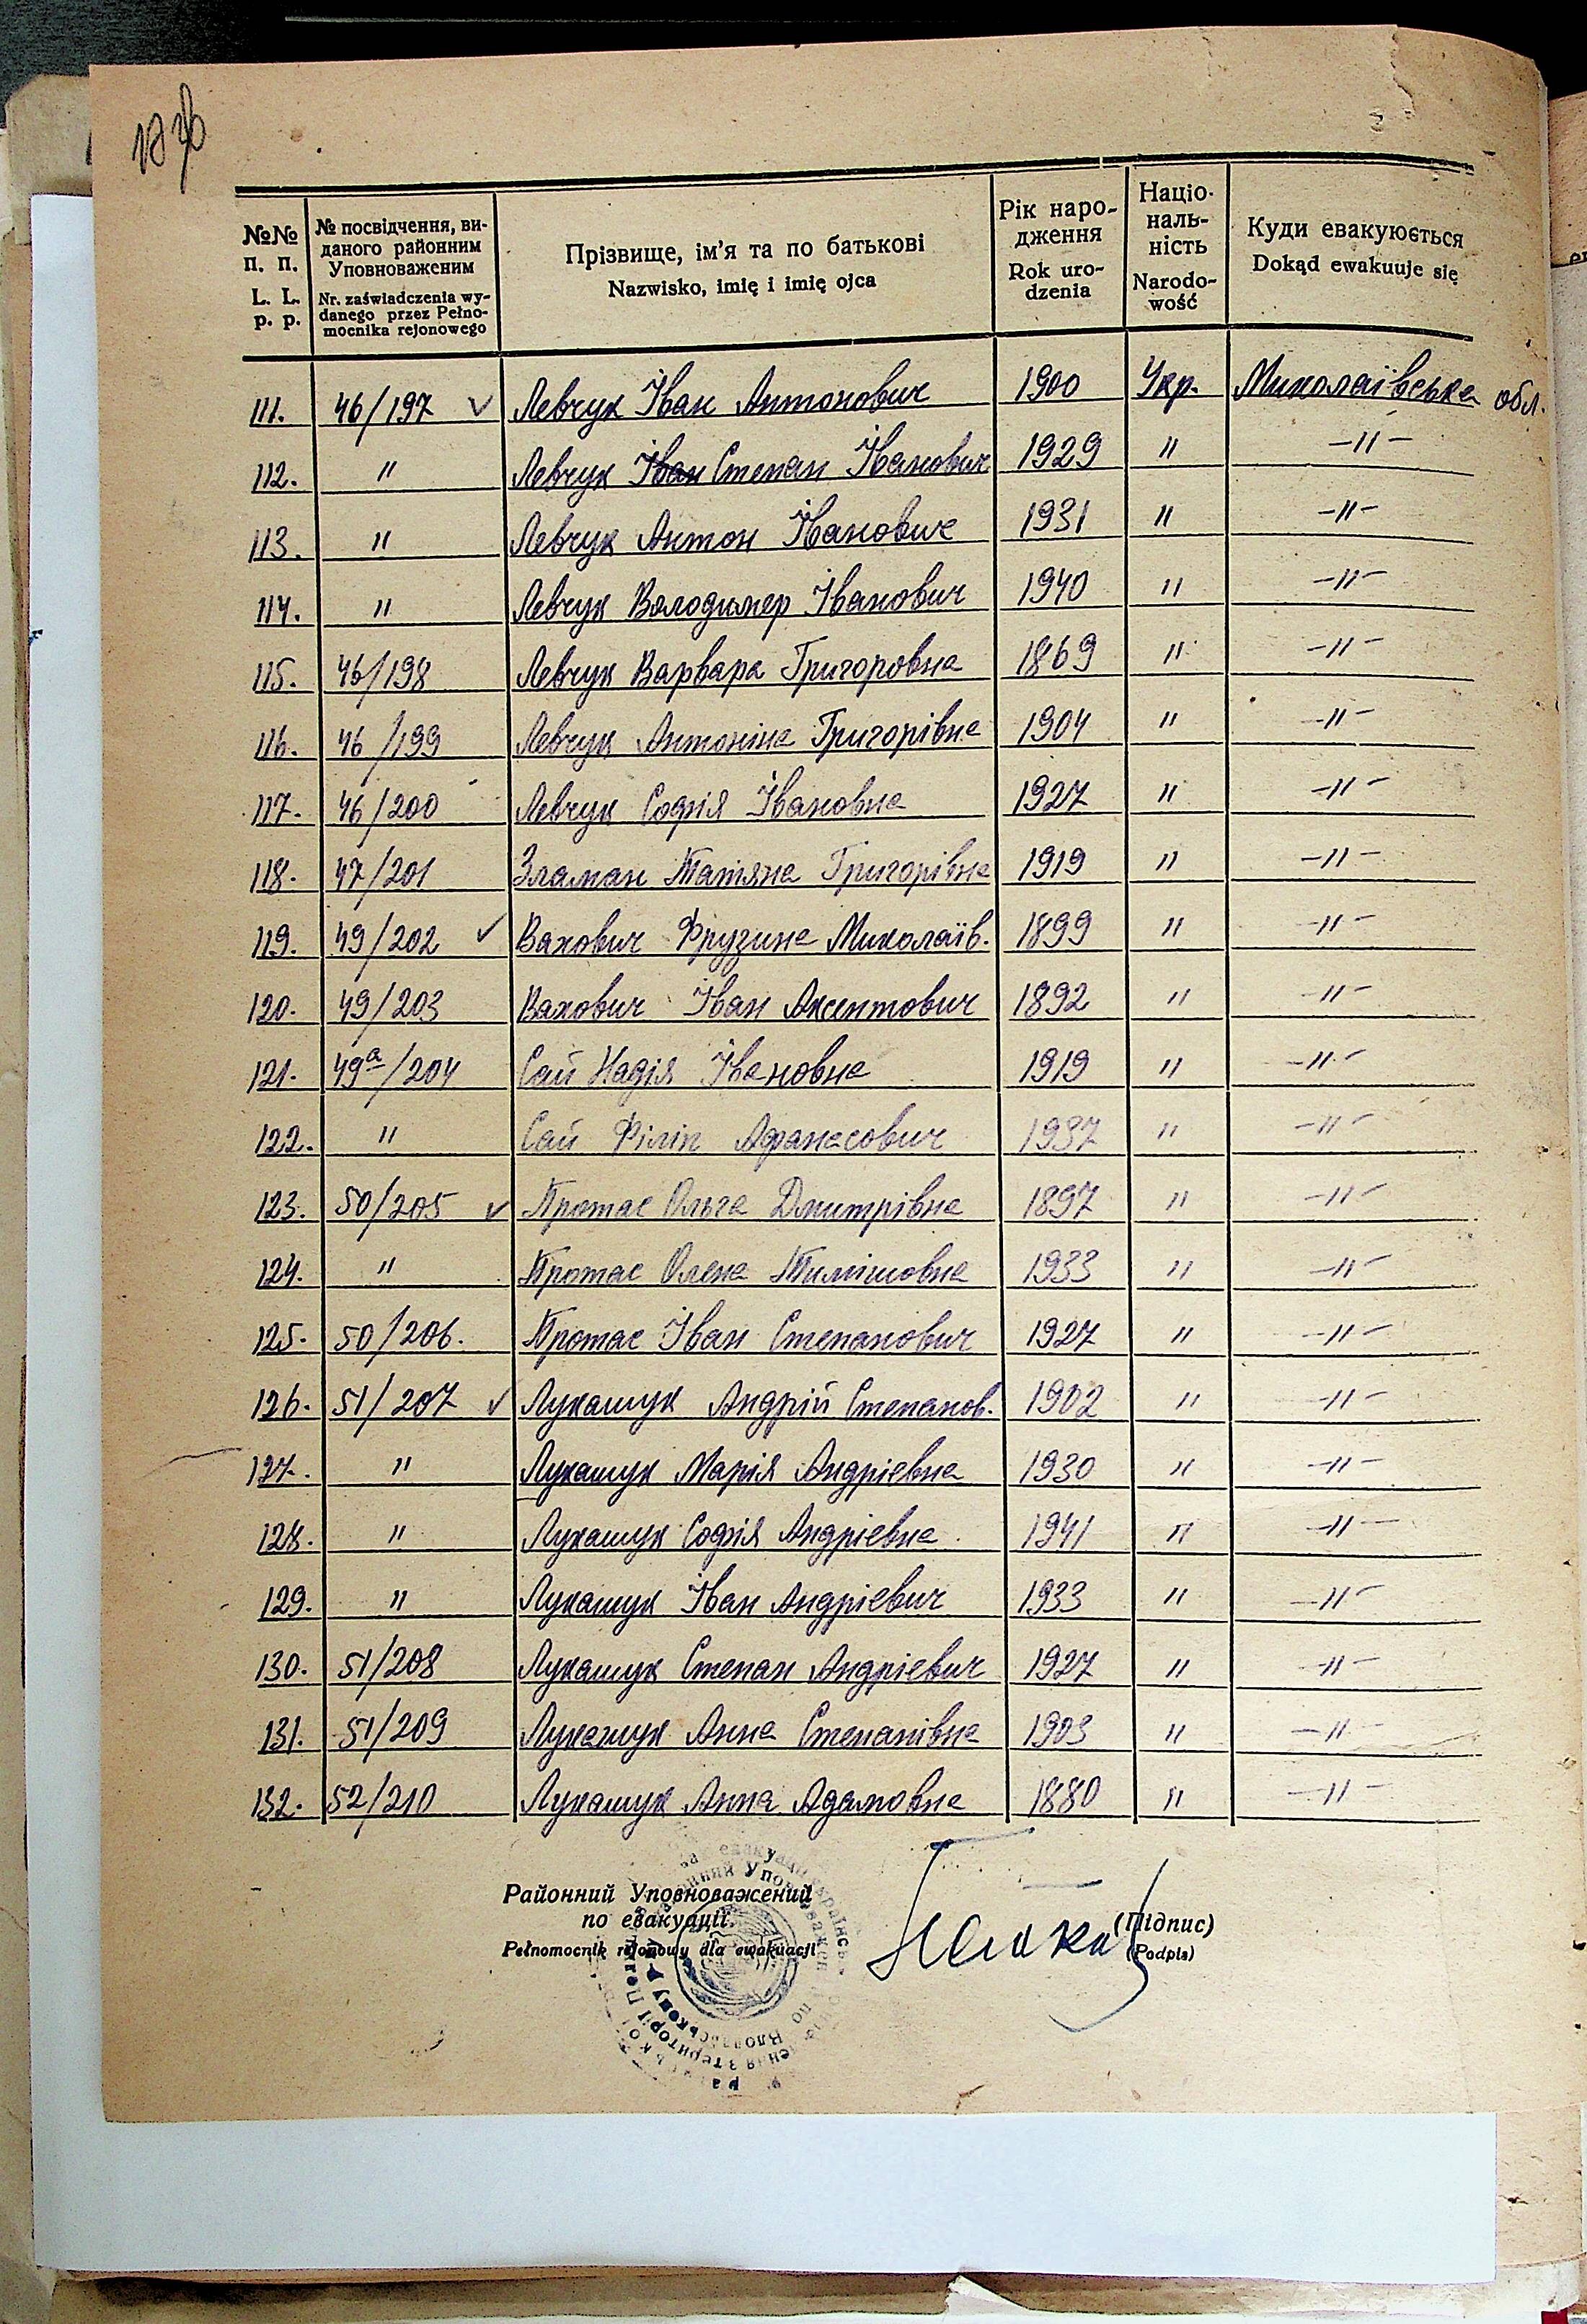 №№ п. п. L. L. p. p. | № посвідчення, виданого районним Уповноваженим Nr. zaświadczenia wydanego przez Pełnomocnika rejonowego | Прізвище, ім'я та по батькові Nazwisko, imię i imię ojca | Рік народження Rok urodzenia | Національність Narodowość | Куди евакуюється Dokąd ewakuuje się
111. 46/197 ✓ Левчук Іван Антонович 1900 Укр. Миколаївська обл.
112. " Левчук Іван Степан Іванович 1929 " -"-
113. " Левчук Антон Іванович 1931 " -"-
114. " Левчук Володимер Іванович 1940 " -"-
115. 46/198 Левчук Варвара Григоровна 1869 " -"-
116. 46/199 Левчук Антоніна Григорівна 1904 " -"-
117. 46/200 Левчук Софія Івановна 1927 " -"-
118. 47/201 Зламан Татяна Григорівна 1919 " -"-
119. 49/202 ✓ Вахович Фрузина Миколаїв. 1899 " -"-
120. 49/203 Вахович Іван Аксентович 1892 " -"-
121. 49а/204 Сай Надія Івановна 1919 " -"-
122. " Сай Філіп Афанасович 1937 " -"-
123. 50/205 ✓ Протас Ольга Дмитрівна 1897 " -"-
124. " Протас Олена 1933 " -"-
125. 50/206. Протас Іван Степанович 1927 " -"-
126. 51/207 ✓ Лукашук Андрій Степанов. 1902 " -"-
127. " Лукашук Марія Андріевна 1930 " -"-
128. " Лукашук Софія Андріевна 1941 " -"-
129. " Лукашук Іван Андріевич 1933 " -"-
130. 51/208 Лукашук Степан Андріевич 1927 " -"-
131. 51/209 Лукашук Анна Степанівна 1903 " -"-
132. 52/210 Лукашук Анна Адамовна 1880 " -"-
Районний Уповноважений
по евакуації. (Підпис)
Pełnomocnik rejonowy dla ewakuacji (Podpis)